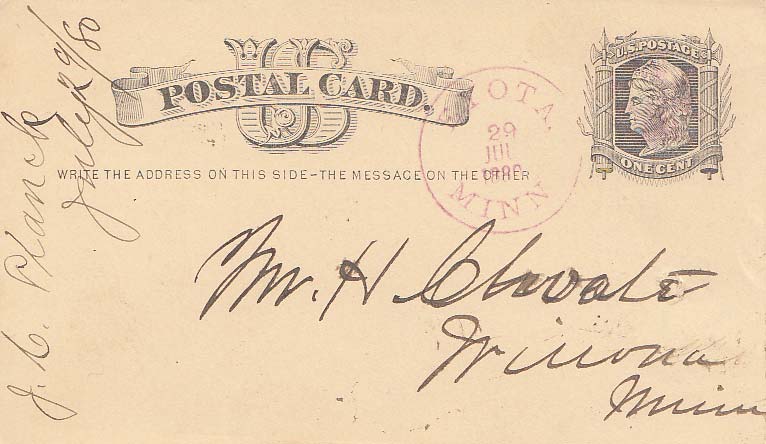 J. C. Planck
July 29/80
US
POSTAL CARD.
WRITE THE ADDRESS ON THIS SIDE-THE MESSAGE ON THE OTHER
OTA.
29
JUL
MINN
U.S. POSTAGE
ONE CENT
Mr. H Choate
Winona
Minn